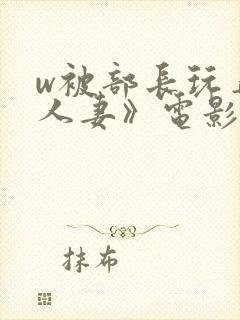 w被部長玩
人妻》電影
抹布